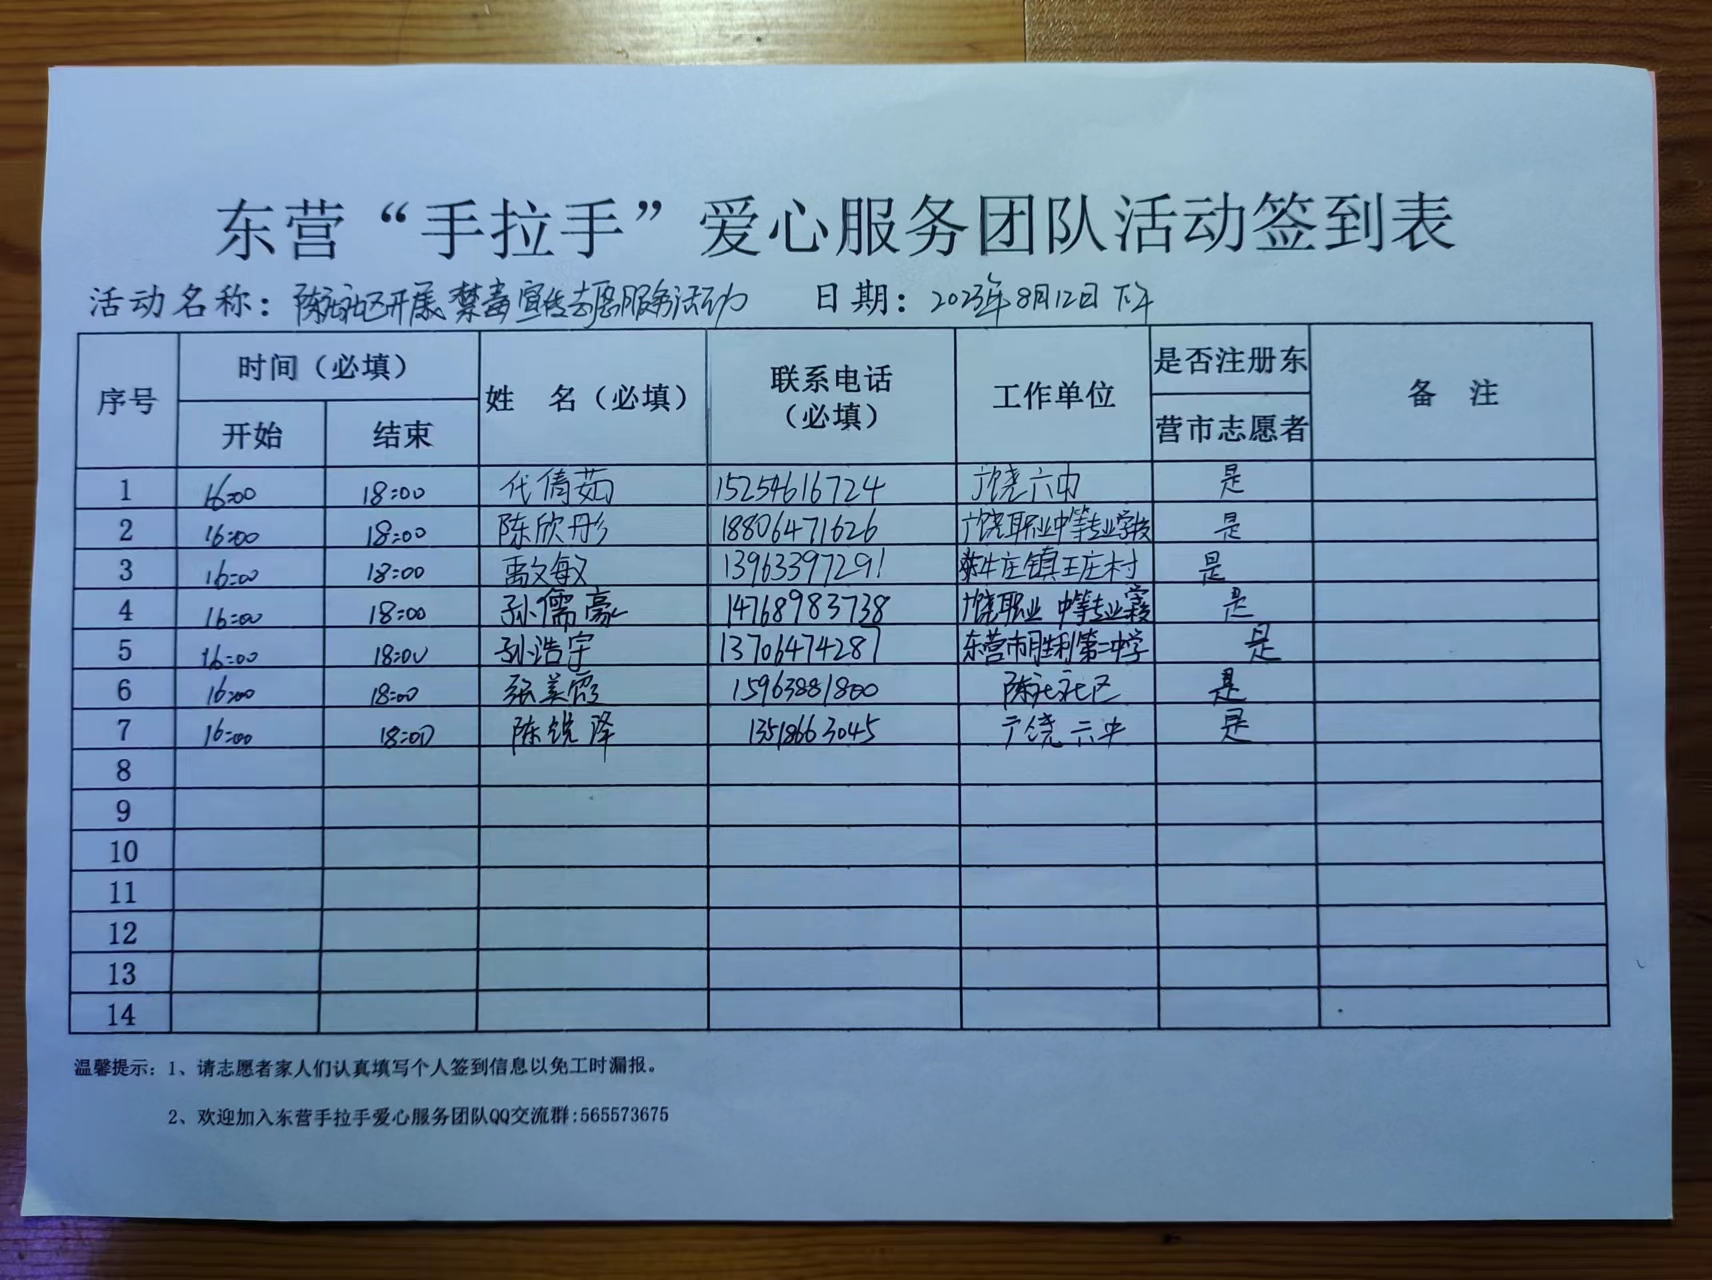 东营“手拉手”爱心服务团队活动签到表
活动名称：陈社区开展禁毒宣传志愿服务活动 日期：2023年8月12日下午
序号 时间（必填） 姓 名（必填） 联系电话（必填） 工作单位 是否注册东营市志愿者 备 注
开始 结束
1 16:00 18:00 代倩茹 15254616724 广饶六中 是
2 16:00 18:00 陈欣彤 18806471626 广饶职业中等专业学校 是
3 16:00 18:00 禹文敏 13963397291 牛庄镇王庄村 是
4 16:00 18:00 孙儒豪 14768983738 广饶职业中等专业学校 是
5 16:00 18:00 孙浩宇 13706474287 东营市胜利第二中学 是
6 16:00 18:00 张美霞 15963881800 社区 是
7 16:00 18:00 陈锐泽 13518663045 广饶六中 是
8
9
10
11
12
13
14
温馨提示：1、请志愿者家人们认真填写个人签到信息以免工时漏报。
2、欢迎加入东营手拉手爱心服务团队QQ交流群:565573675